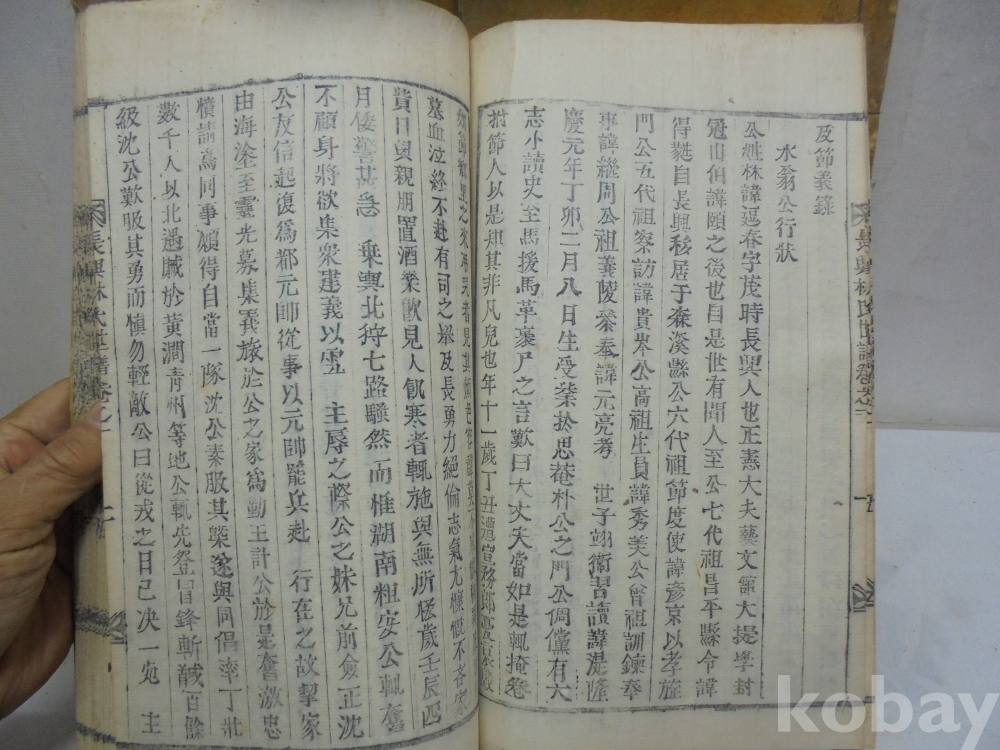 及節義錄
水翁公行狀
公姓林諱逞春字茂時長興人也正憲大夫藝文館大提學封
冠山伯諱頤之後也自是世有聞人至公七代祖昌平縣令諱
得 自長興移居于森溪縣公六代祖節度使諱彥京以孝旌
門公五代祖察訪諱貴 公高祖生員諱秀美公曾祖訓鍊奉
事諱繼周公祖義陵參奉諱元亮考 世子翊衛習讀諱 隆
慶元年丁卯二月八日生受業於思庵朴公之門公倜儻有大
志小讀史至馬援馬革裹尸之言歎曰大丈夫當如是輒掩卷
節人以是知其非凡兒也年十一歲丁丑遭
之
墓血泣終不赴有司之擧及長勇力絕倫志氣尤慷慨不吝家
貲日與親朋置酒樂歡見人飢寒者輒施與無所 歲壬辰四
月倭警甚急 乘輿北狩七路騷然而惟湖南粗安公輒奮
不顧身將欲集衆建義以雪 主辱之際公之妹兄前僉正沈
公友信起復爲都元帥從事以元帥罷兵赴 行在之故挈家
由海塗至靈光募集義旅於公之家爲勤王計公於是奮激忠
憤請爲同事願得自當一隊沈公素服其 遂與同倡率丁壯
數千人以北遇賊於黃澗靑州等地公輒先登冒鋒斬馘百餘
級沈公歎服其勇而愼勿輕敵公曰從戎之日已決一死 主
長興林氏世譜卷之一
kobay